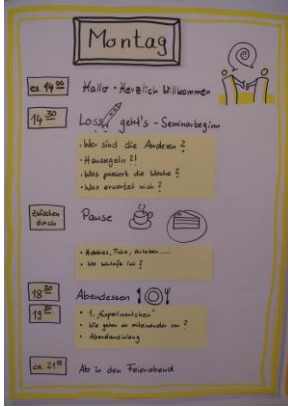 Montag
ca. 14 00
Hallo - Herzlich Willkommen
14 30
Los geht's - Seminarbeginn
• Wer sind die Anderen?
• Hausregeln?!
• Was passiert die Woche?
• Was erwartet mich?
zwischen durch
Pause
• Hobbies, Ticks, Vorlieben.....
• Wo schlafe ich?
18 30
Abendessen
19 30
• 1. "Experimentchen"
• Wie gehen wir miteinander um?
• Abendausklang
ca. 21 00
Ab in den Feierabend